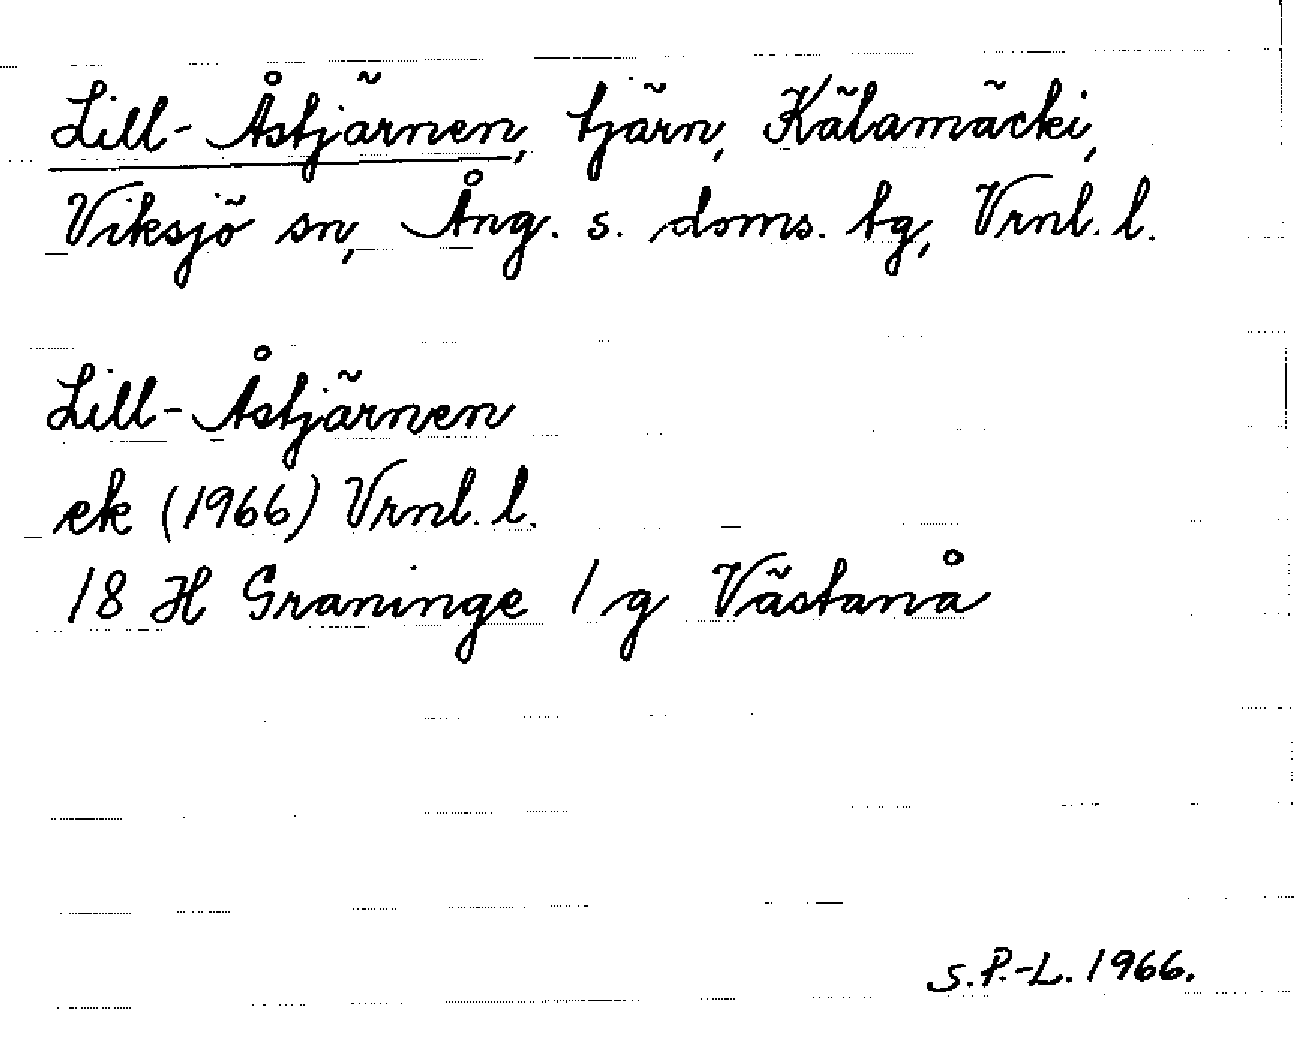 Lill-Åstjärnen, tjärn, Kälamäcki,
Viksjö sn, Ång. s. doms. tg, Vrnl. l.
Lill-Åstjärnen
ek (1966) Vrnl. l.
18 H Graninge 1 g Västanå
S.P.-L. 1966.